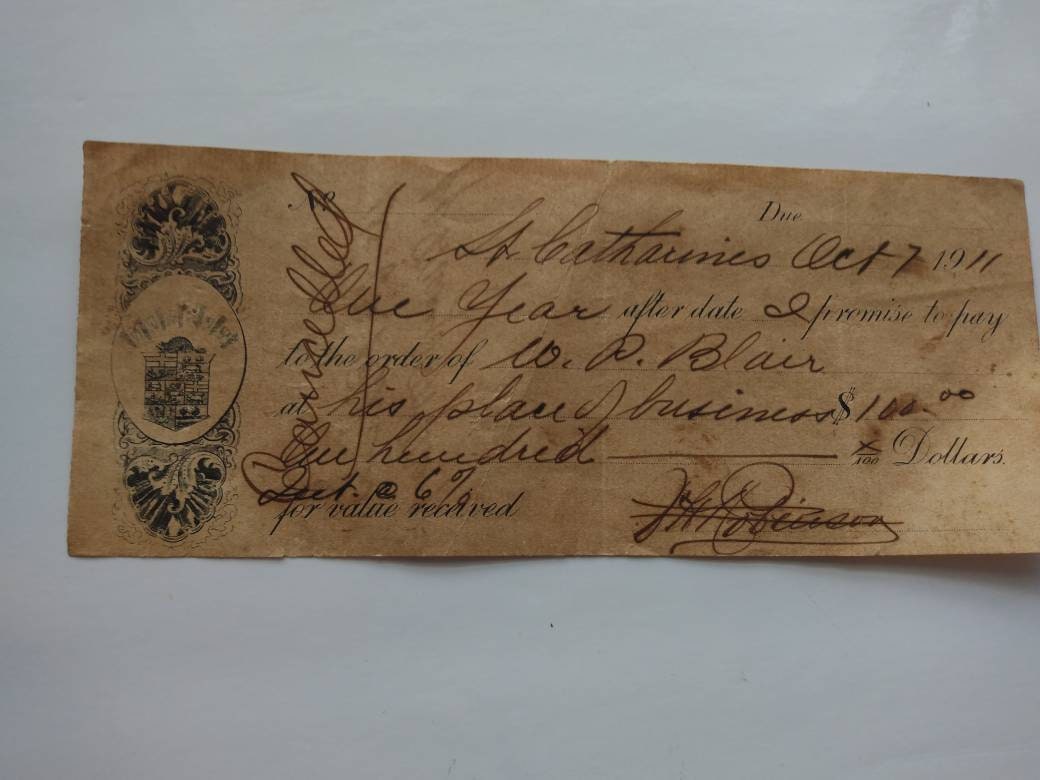 No. Due
St. Catharines Oct 7 1911
One Year after date I promise to pay
to the order of W. P. Blair
at his place of business $100.00
One hundred x/100 Dollars.
Int. @ 6%
for value received
Robinson
Cancelled